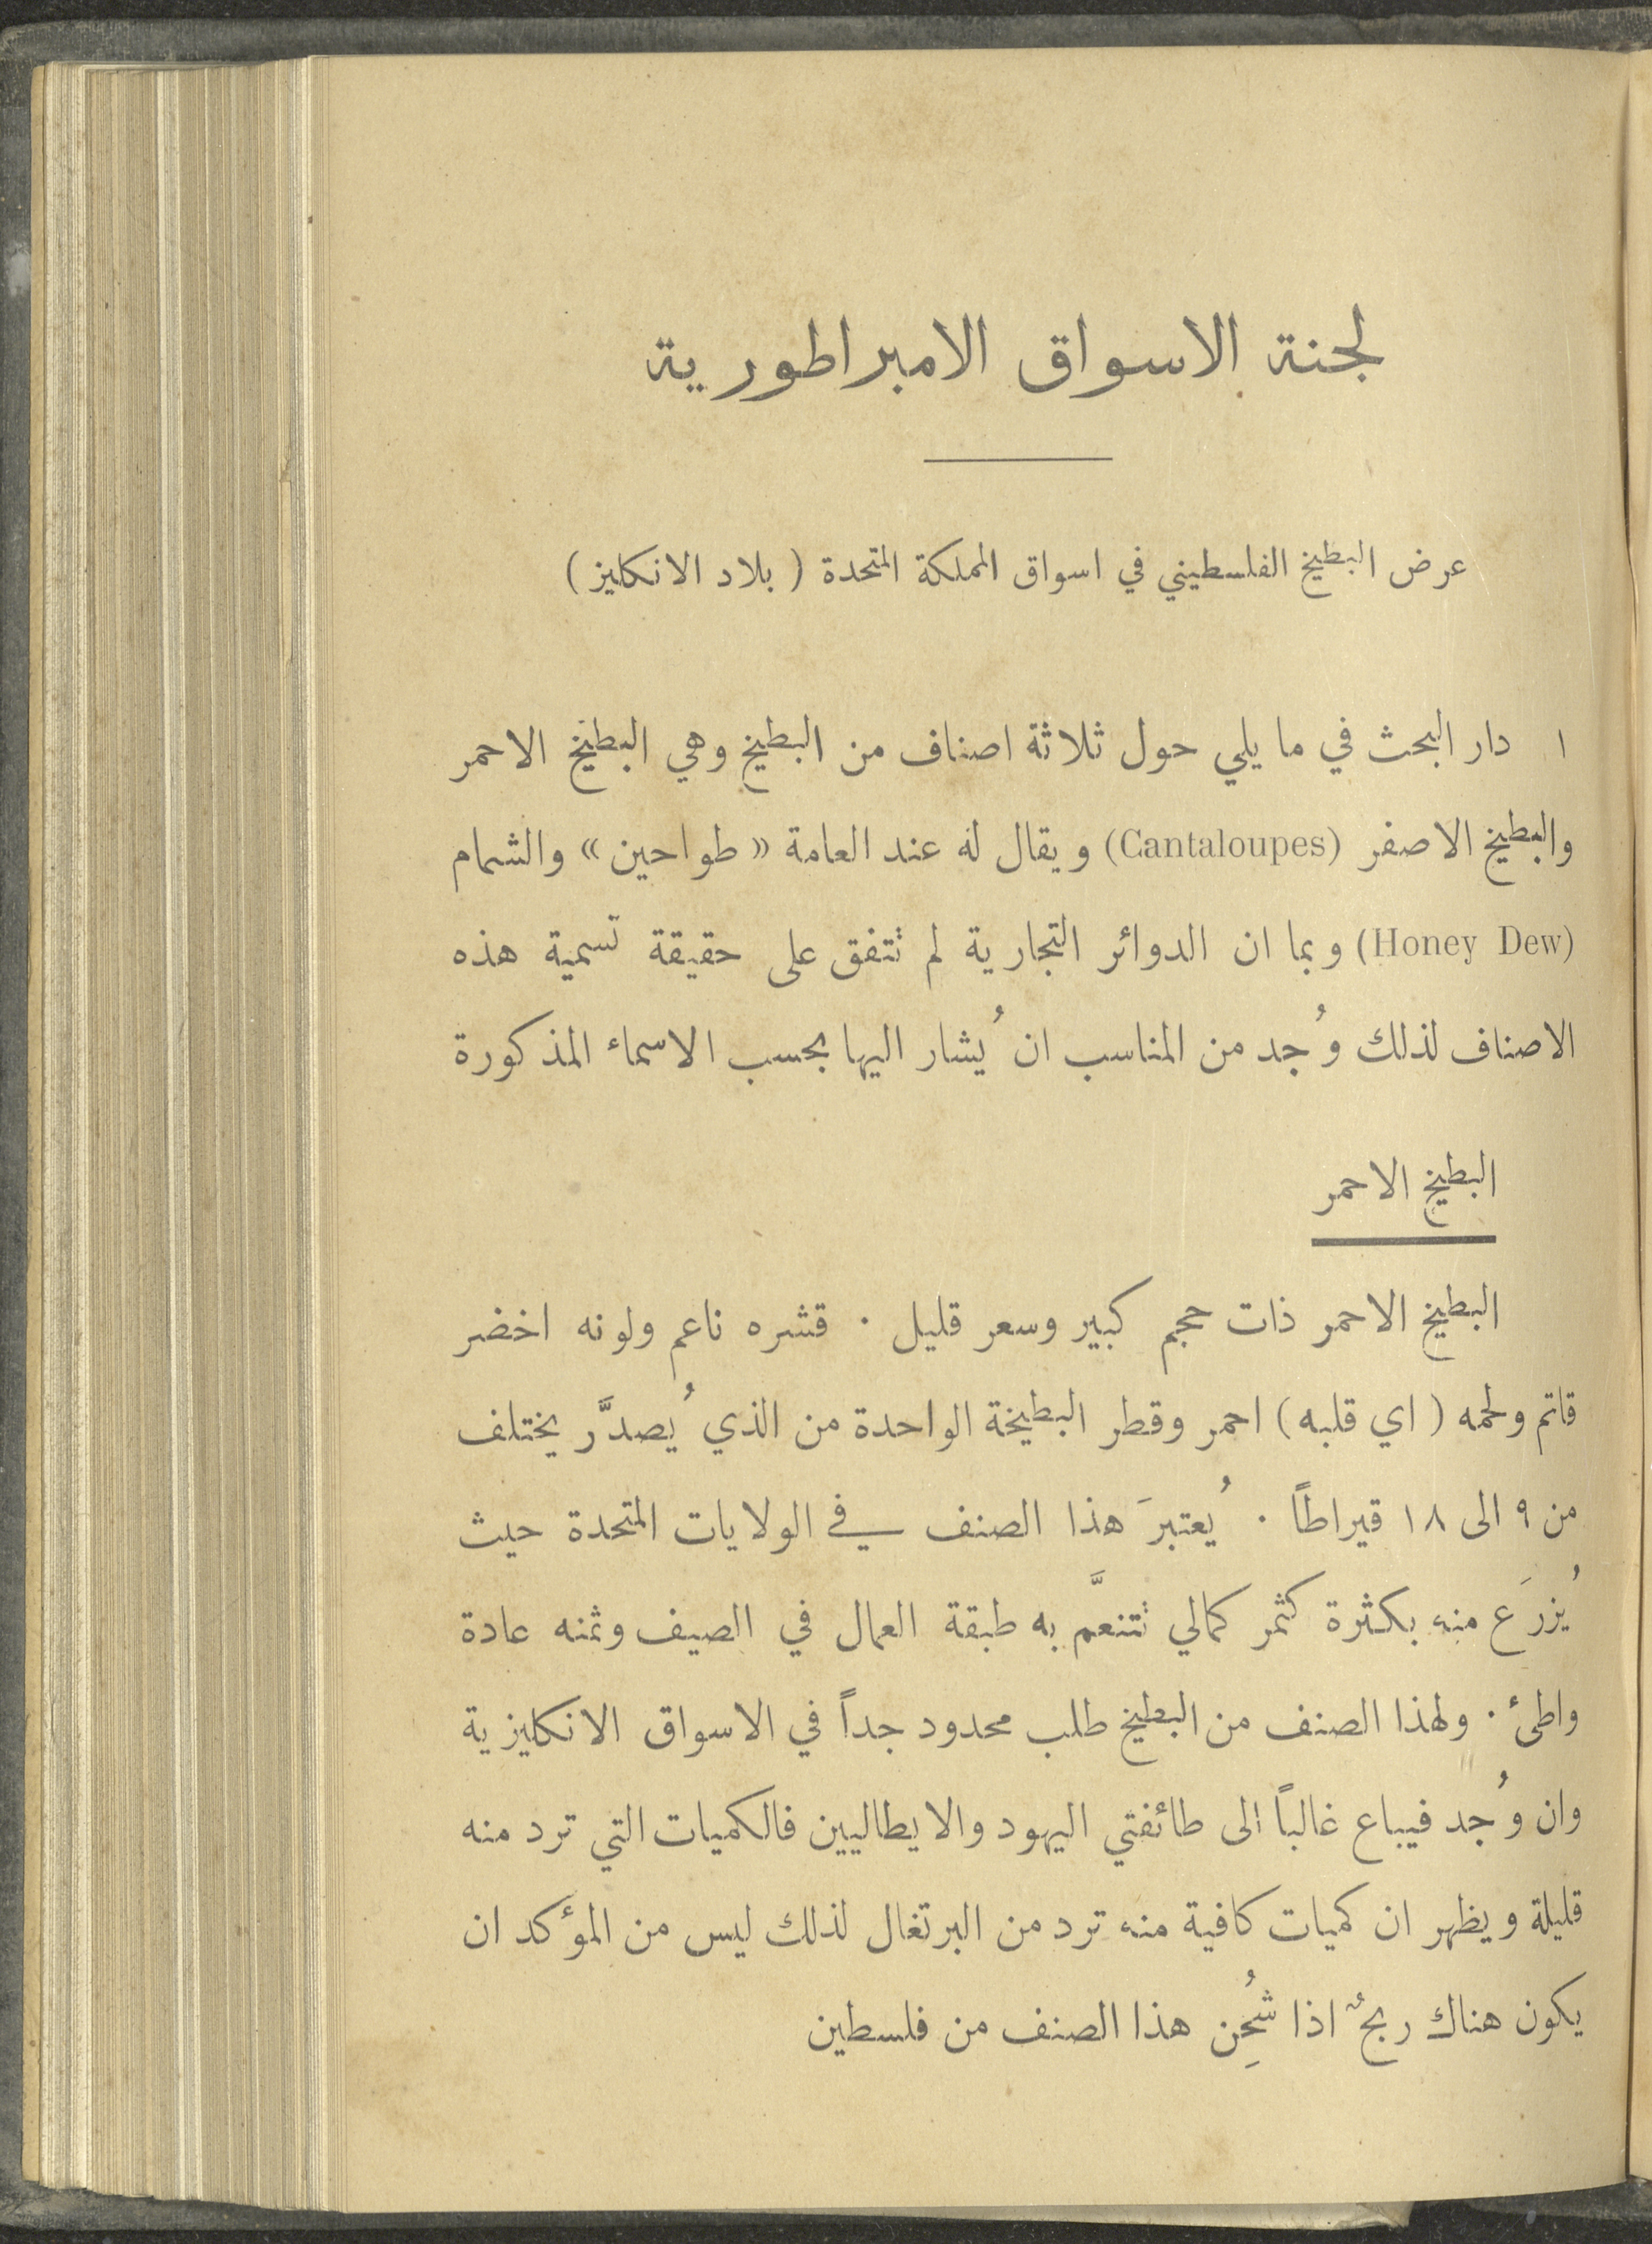 لجنة الاسواق الامبراطورية
عرض البطيخ الفلسطيني في اسواق المملكة المتحدة ( بلاد الانكليز )
١ دار البحث في ما يلي حول ثلاثة اصناف من البطيخ وهي البطيخ الاحمر
والبطيخ الاصفر (Cantaloupes) ويقال له عند العامة « طواحين » والشمام
(Honey Dew) وبما ان الدوائر التجارية لم تتفق على حقيقة تسمية هذه
الاصناف لذلك وُجد من المناسب ان يُشار اليها بحسب الاسماء المذكورة
البطيخ الاحمر
البطيخ الاحمر ذات حجم كبير وسعر قليل . قشره ناعم ولونه اخضر
قاتم ولحمه ( اي قلبه ) احمر وقطر البطيخة الواحدة من الذي يُصدَّر يختلف
من ٩ الى ١٨ قيراطاً . يُعتبرَ هذا الصنف في الولايات المتحدة حيث
يُزرَع منه بكثرة كثمر كمالي تتنعَّم به طبقة العمال في الصيف وثمنه عادة
واطئ . ولهذا الصنف من البطيخ طلب محدود جداً في الاسواق الانكليزية
وان وُجد فيباع غالباً الى طائفتي اليهود والايطاليين فالكميات التي ترد منه
قليلة ويظهر ان كميات كافية منه ترد من البرتغال لذلك ليس من المؤكد ان
يكون هناك ربحٌ اذا شُحِن هذا الصنف من فلسطين